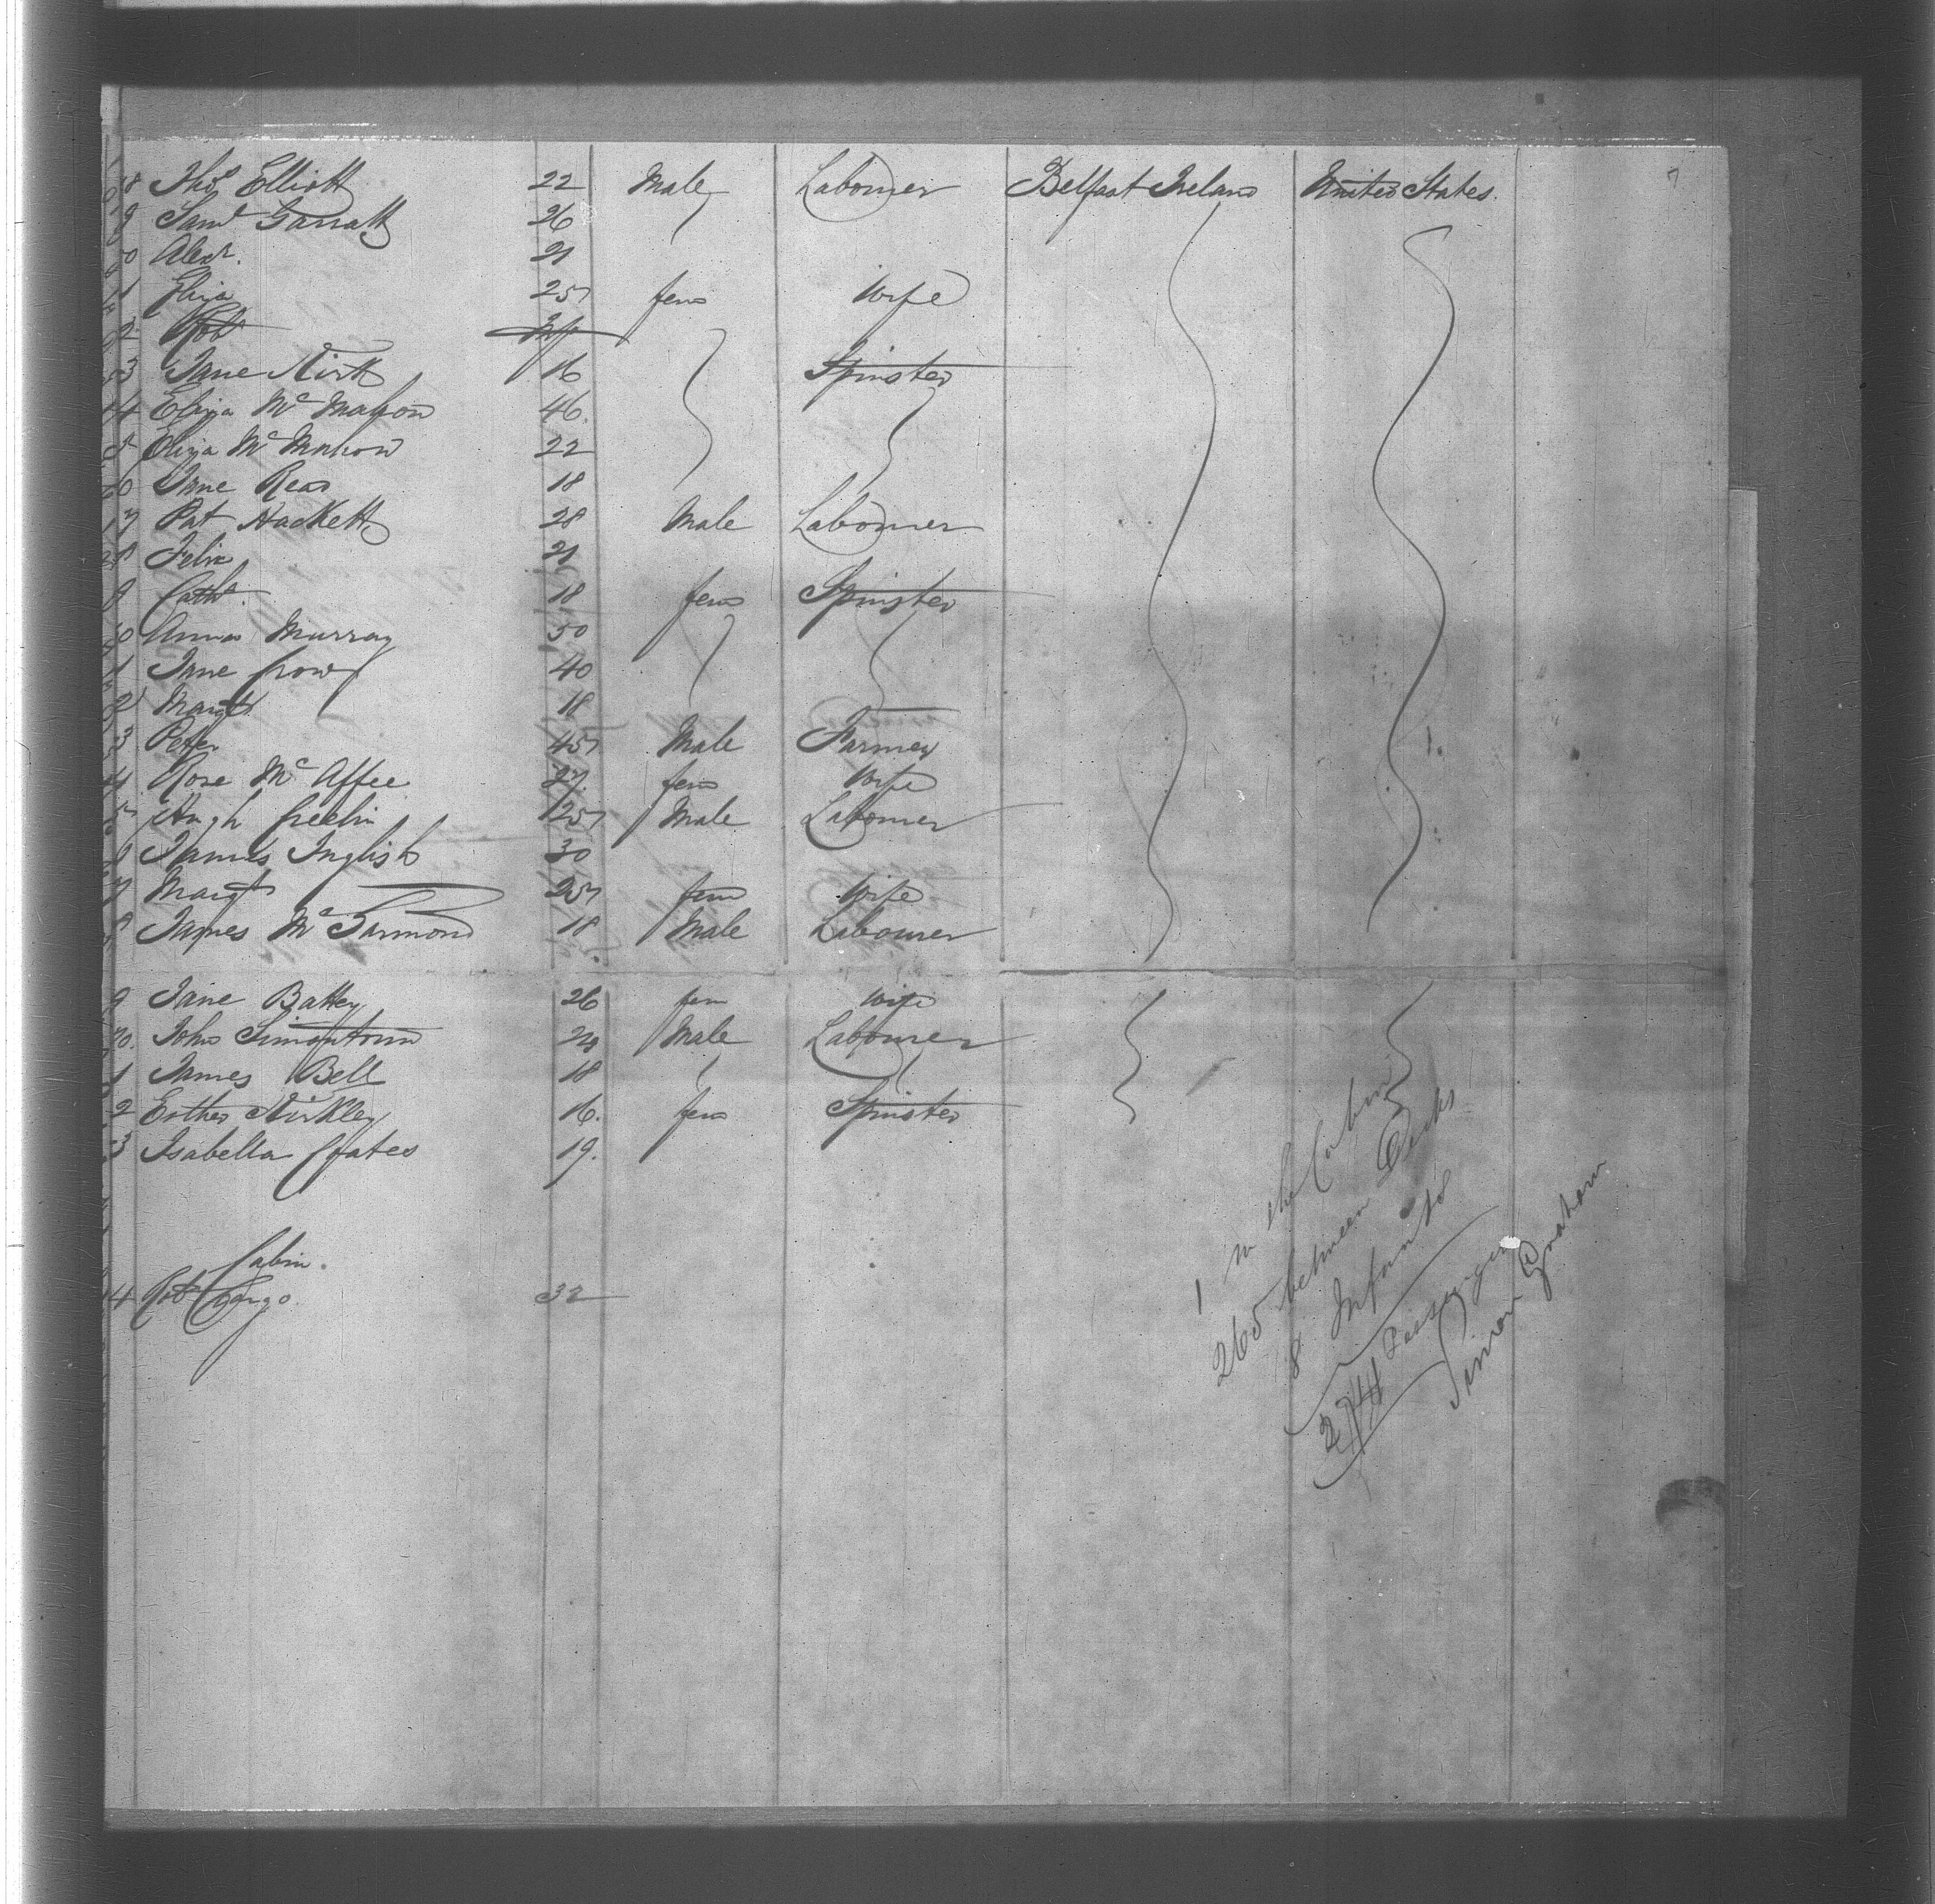 18 Thos Elliott 22 Male Labourer Belfast Ireland United States. 7
9 Saml Garratt 26
0 Alexr. 21
1 Eliza 25 fem Wife
2 Rob Inf
3 Jane Kirk 16 Spinster
4 Eliza Mc Mahon 46.
5 Eliza Mc Mahon 22
6 Jane Rea 18
7 Pat Hackett 28 Male Labourer
8 Felix 21
9 Cathe. 18 fem Spinster
0 Anna Murray 50
1 Jane Crow 40
2 Margt 18
3 Peter 45 Male Farmer
4 Rose Mc Affee 27. fem Wife
5 Hugh Creelin 25 Male Labourer
6 James Inglish 30
7 Margt 25 fem Wife
8 James Mc Tarmond 18 Male Labourer
9 Jane Battey 26 fem Wife
70. John Simontown 24 Male Labourer
1 James Bell 18
2 Esther Kirkley 16. fem Spinster
3 Isabella Coates 19.
Cabin.
4 Rot Cargo. 32
1 in the Cabin
265 between Decks
8 Infants
274 Passengers
Simon Graham